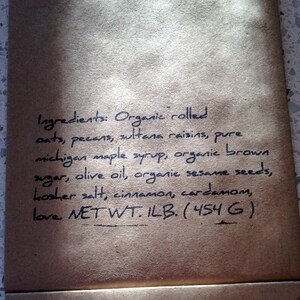 Ingredients: Organic rolled
oats, pecans, sultana raisins, pure
michigan maple syrup, organic brown
sugar, olive oil, organic sesame seeds,
kosher salt, cinnamon, cardamom,
love NET WT. 1LB. (454 G)